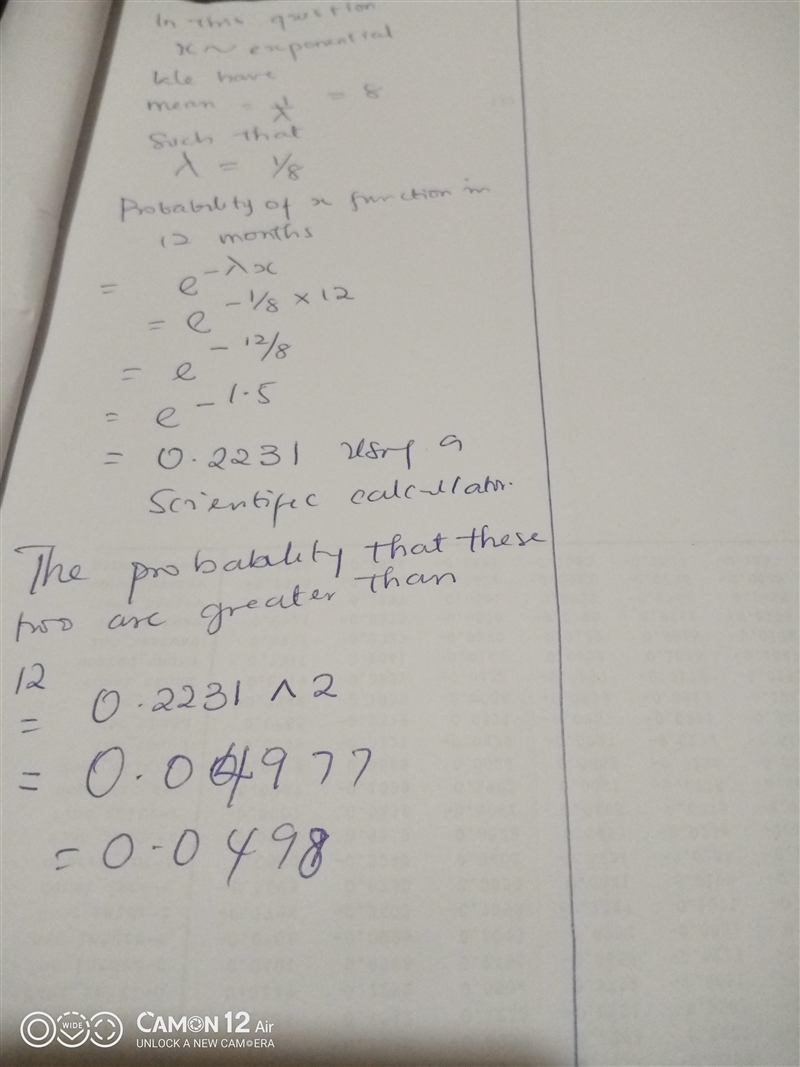 In this question
x ~ exponential
We have
mean = 1/λ = 8
Such that
λ = 1/8
Probability of x function in
12 months
= e^-λx
= e^-1/8 × 12
= e^-12/8
= e^-1.5
= 0.2231 using a
Scientific calculator.
The probability that these
two are greater than
12
= 0.2231 ^ 2
= 0.04977
= 0.0498
WIDE
CAMON 12 Air
UNLOCK A NEW CAMERA